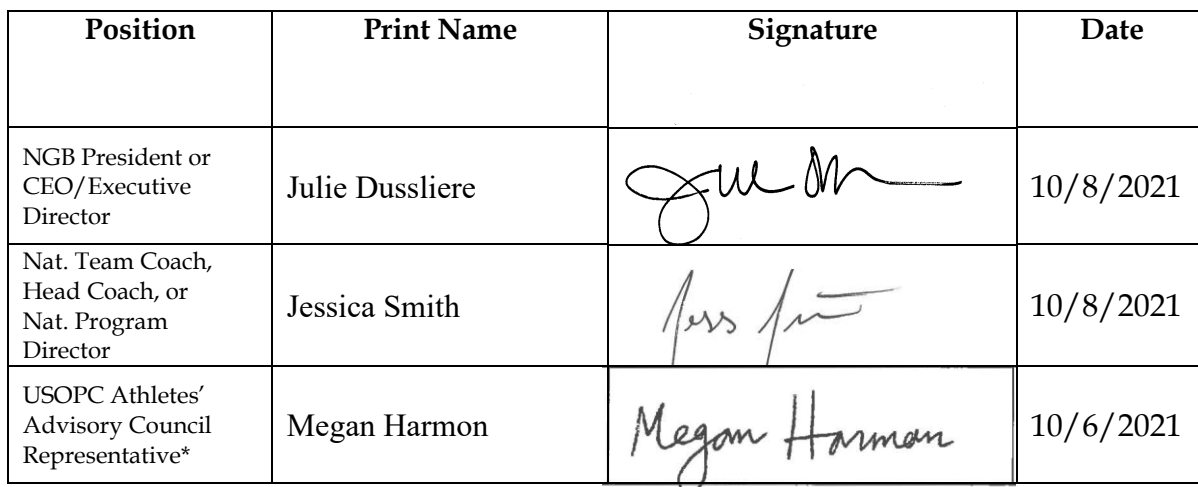 Position Print Name Signature Date
NGB President or
CEO/Executive
Director
Julie Dussliere
10/8/2021
Nat. Team Coach,
Head Coach, or
Nat. Program
Director
Jessica Smith
Jess
10/8/2021
USOPC Athletes’
Advisory Council
Representative*
Megan Harmon
Megan Harmon
10/6/2021